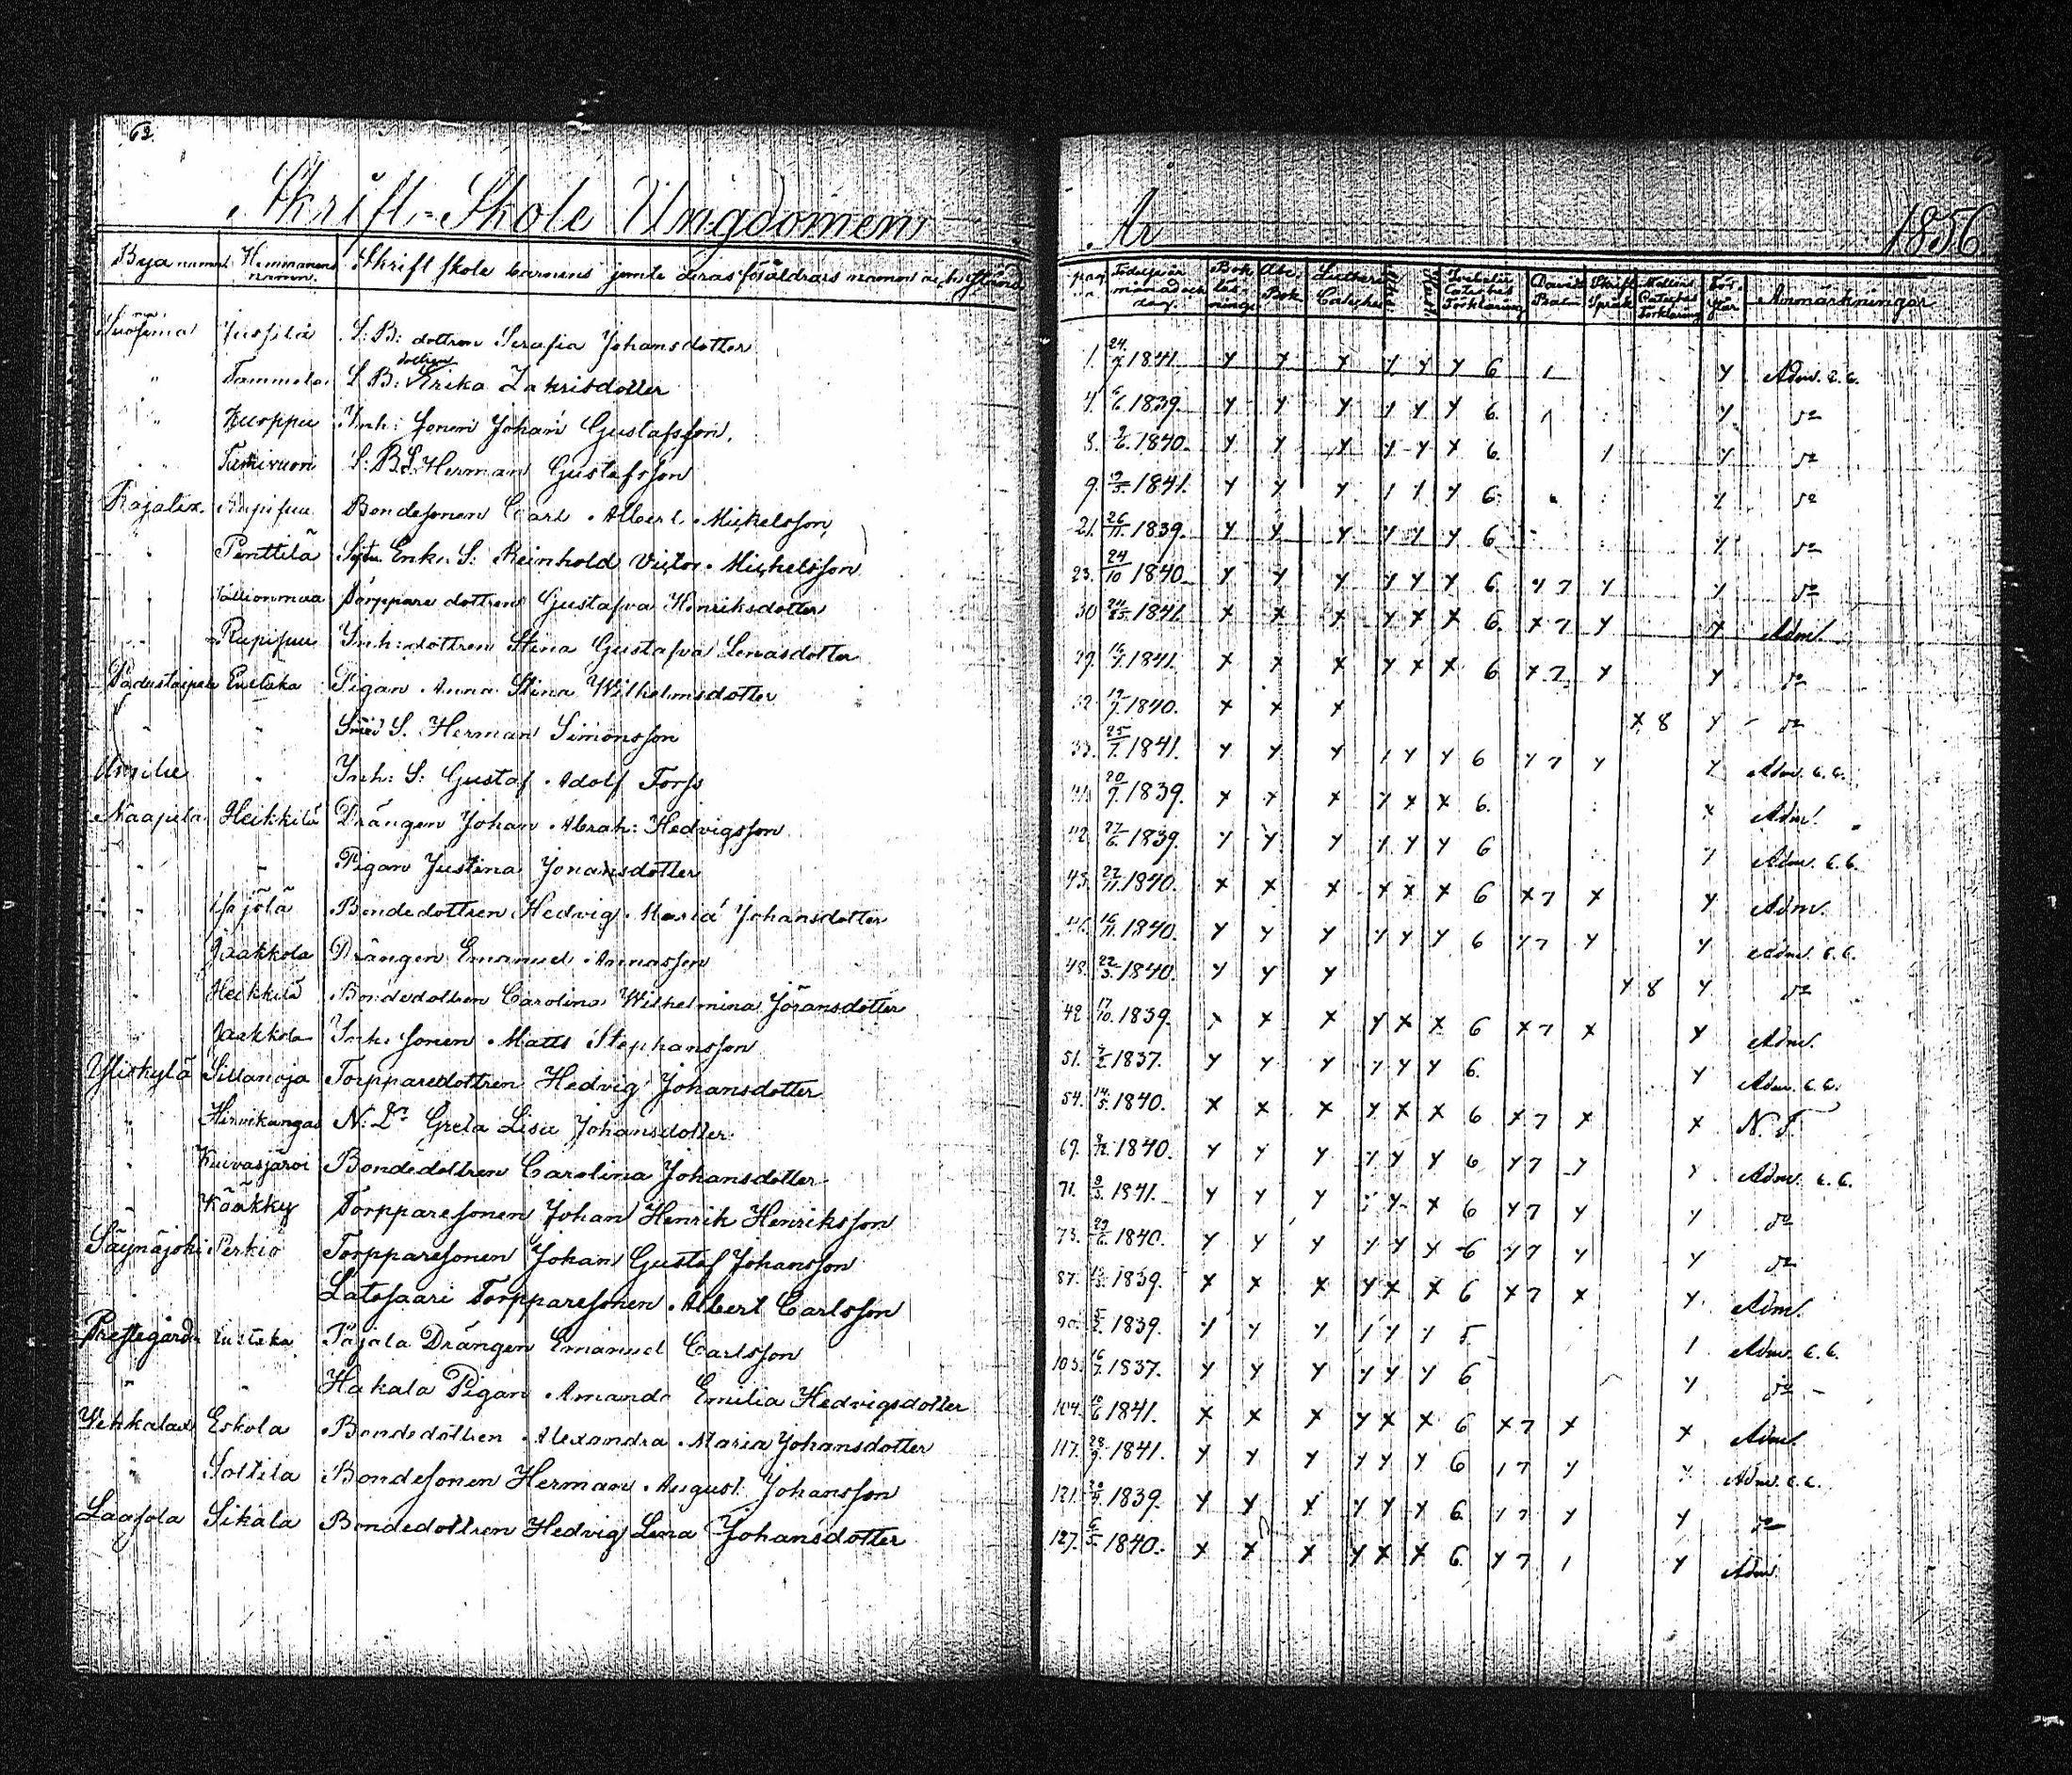 62.
Skrift-Skole Ungdomen
År 1856.
Bya namn Hemmanens namn. Skrift skole barnens jemte deras föräldrars namn och
pag. Födelseår månad och dag. Bok Abc. Bok. Lutheri Cateches Davids Psalm Skrift Språk Anmärkningar
Jussila S: B: dottren Serafia Johansdotter 1. 24/7 1841. y y y y y y 6 1 y Adm. C. C.
" Tammela S. B: dottren Erika Zakrisdotter 4. 1839. y y y y y y 6. 1 y do
" Kuoppu Inh: Sonen Johan Gustafsson. 8. 1840. y y y y y x 6. 1 y do
" S: B: S. Herman Gustafsson 9. 1841. y y y 1 1 y 6. y do
Rajalax. Bondesonen Carl Albert Mickelsson, 21. 26/11. 1839. y y y y y y 6 y do
" Penttilä Enk. S: Reinhold Victor Michelsson 23. 24/10 1840. y y y y y y 6. y 7 y y do
" Torppare dottren Gustafva Henriksdotter 30 1841. x x x y x x 6. x 7 y x Adm.
" Inh: dottren Stina Gustafva Lenasdotter 1841. x x x y x x 6 x 7. x y do
Eustaka Pigan Anna Stina Wilhelmsdotter 1840. x x x x 8 y do
" S. Herman Simonsson 25/7. 1841. y y y 1 y y 6 y 7 y y Adm. C. C.
" Inh: S: Gustaf Adolf Torfs 20/7. 1839. x x x y x x 6. x Adm.
Naapila Heikkilä Drängen Johan Abrah: Hedvigsson 27/6. 1839. y y y y y y 6 y Adm. C. C.
" " Pigan Justina Jonansdotter 27/11. 1840. x x x x x x 6 x 7 x y Adm.
" Bondedottren Hedvig Maria Johansdotter 16/11. 1840. y y y y y y 6 y 7 y y Adm. C. C.
" Jaakkola Drängen Emanuel Annasson 48. 22/3. 1840. y y y y 8 y do
" Heikkilä Bondedottren Carolina Wilhelmina Jöransdotter 42 17/10. 1839. x x x y x x 6 x 7 x x Adm.
" Jaakkola Inh. Sonen Matts Stephansson 51. 1837. y y y y y y 6. y Adm. C. C.
Yliskylä Sillanoja Torpparedottren Hedvig Johansdotter 54. 14/5. 1840. x x x y x x 6 x 7 x x N. F.
" Hirvikangas N: Dr Greta Lisa Johansdotter 69. 1840. y y y y y y 6 y 7 y y Adm. C. C.
" Kuivasjärvi Bondedottren Carolina Johansdotter 71. 1841. y y y y x 6 y 7 y y do
" Kääkky Torpparesonen Johan Henrik Henriksson 73. 29/6. 1840. y y y y y y 6 y 7 y y do
Säynäjoki Perkiö Torpparesonen Johan Gustaf Johansson 87. 1839. x x x y x x 6 x 7 x y Adm.
" Latosaari Torpparesonen Albert Carlsson 90. 1839. y y y 1 y y 5. 1 Adm. C. C.
Prestegård Eustaka Pajala Drängen Emanuel Carlsson 103. 16/7. 1837. y y y y y y 6 y do
" " Hakala Pigan Amanda Emilia Hedvigsdotter 104. 1841. x x x y x x 6 x 7 x x Adm.
Eskola Bondedottren Alexandra Maria Johansdotter 117. 28/9. 1841. y y y y y y 6 1 7 y y Adm. C. C.
" Sottila Bondesonen Herman August Johansson 121. 1839. y y y y y y 6. y 7 y y do
Laasola Sikala Bondedottren Hedvig Lena Johansdotter 127. 6/5. 1840. x x x y x x 6. y 7 1 y Adm.